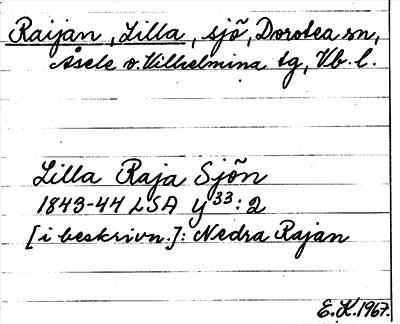 Raijan, Lilla, sjö, Dorotea sn,
Åsele o. Vilhelmina tg, Vb. l.
Lilla Raja Sjön
1843-44 LSA Y 33:2
[i beskrivn.]: Nedra Rajan
E.K. 1967.